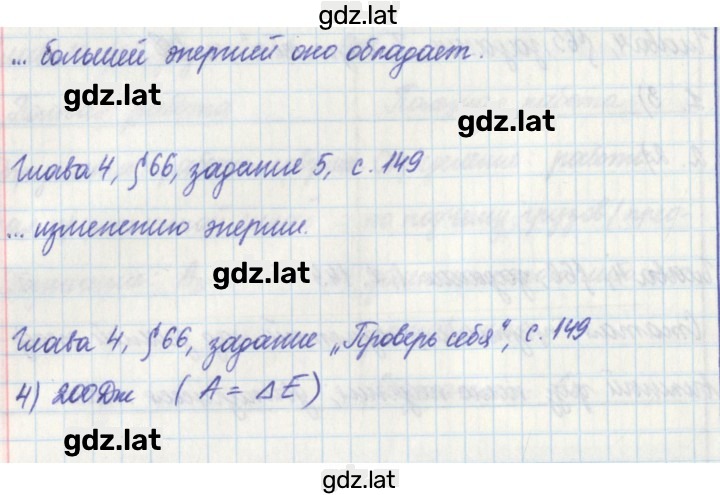 gdz.lat
... большей энергией оно обладает.
gdz.lat
gdz.lat
Глава 4, §66, задание 5, с. 149
... изменению энергии.
gdz.lat
Глава 4, §66, задание „Проверь себя", с. 149
4) 200Дж (A = ΔE)
gdz.lat
gdz.lat